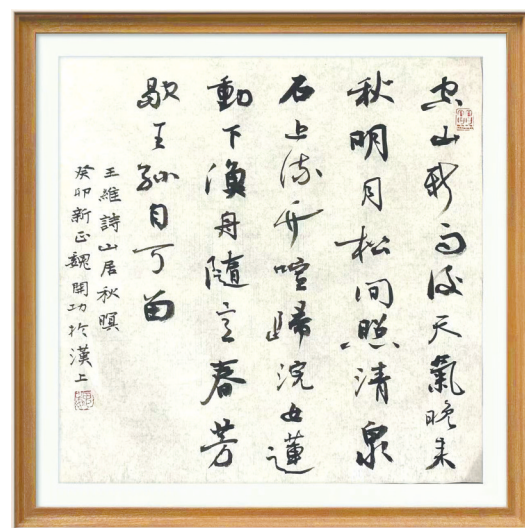 空山新雨後天氣晚来
秋明月松间照清泉
石上流竹喧歸浣女蓮
動下漁舟隨意春芳
歇王孫自可留
王維詩山居秋暝
癸卯新正魏開功於漢上